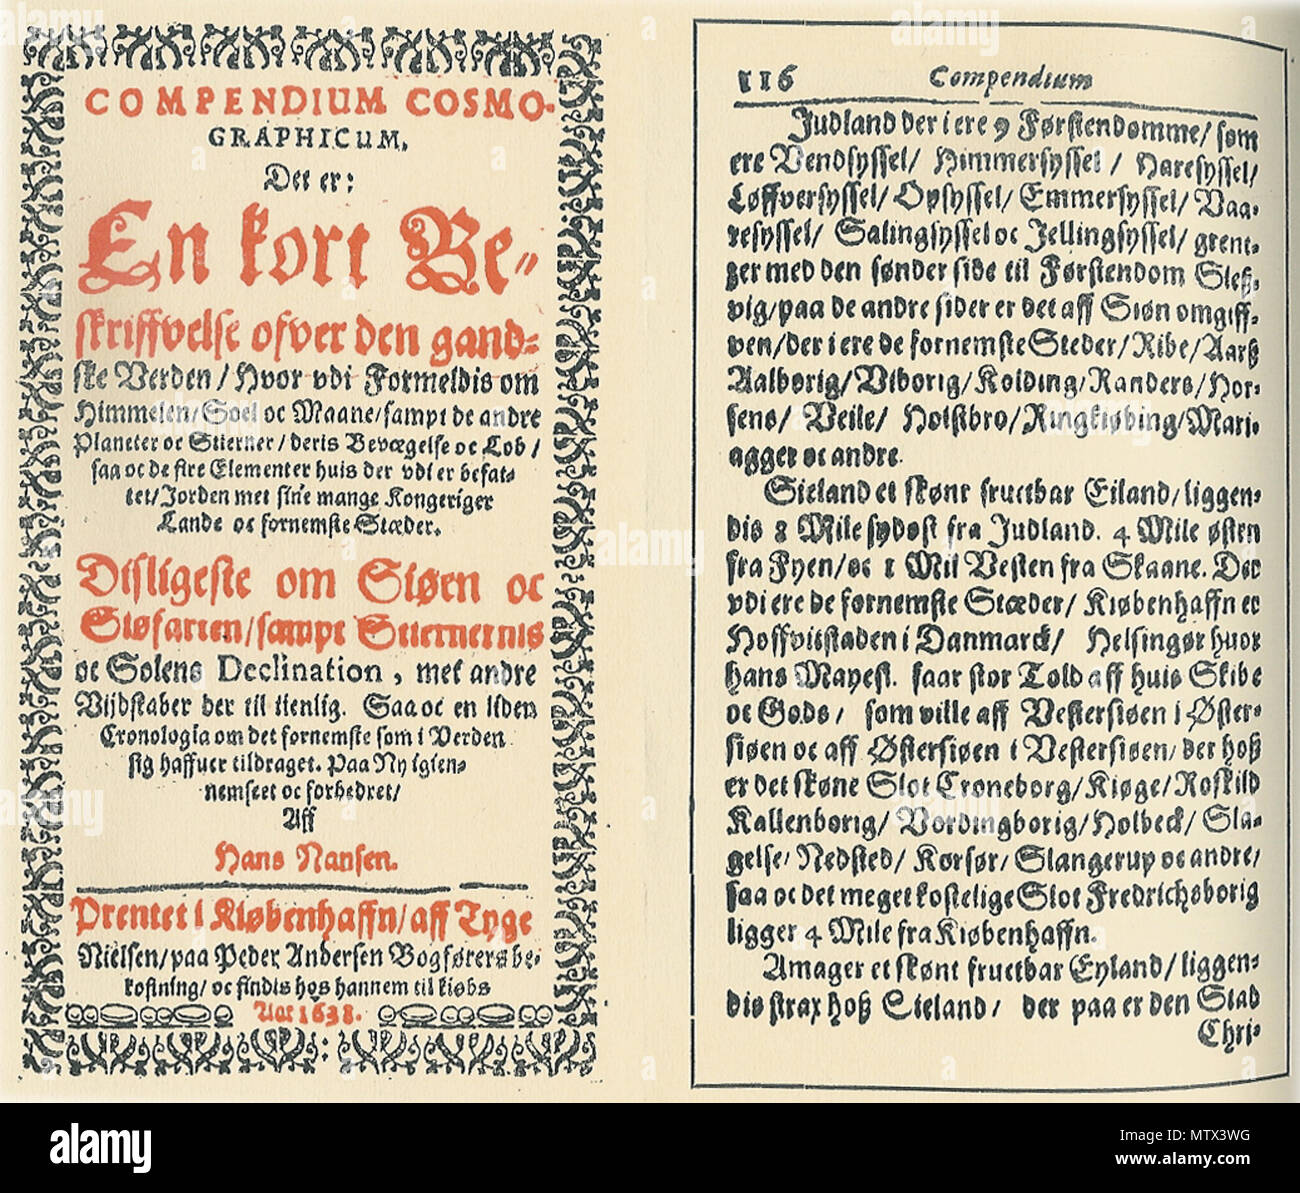 COMPENDIUM COSMO-
GRAPHICUM,
Det er:
En kort Be-
skriffvelse ofver den gand-
ske Verden / Hvor udi Formeldis om
Himmelen / Soel oc Maane / sampt de andre
Planeter oc Stierner / deris Bevægelse oc Lob /
saa oc de fire Elementer huis der udi er befat-
tet / Jorden met sine mange Kongeriger
Lande oc fornemste Stæder.
Disligeste om Siøen oc
Siøfarten / sampt Stiernernis
oc Solens Declination, met andre
Vijdskaber der til tienlig. Saa oc en liden
Cronologia om det fornemste som i Verden
sig haffuer tildraget. Paa Ny igien-
nemseet oc forbedret /
Aff
Hans Nansen.
Prentet i Kiøbenhaffn / aff Tyge
Nielsen / paa Peder Andersen Bogførers be-
kostning / oc findis hos hannem til kiøbs
Aar 1638.
116 Compendium
Judland der i ere 9 Førstendomme / som
ere Vendsyssel / Himmersyssel / Haresyssel /
Løffversyssel / Opsyssel / Emmersyssel / Vaa-
resyssel / Salingsyssel oc Jellingsyssel / grent-
zer med den sønder side til Førstendom Sleß-
vig / paa de andre sider er det aff Siøn omgiff-
ven / der i ere de fornemste Steder / Ribe / Aarß
Aalborig / Viborig / Kolding / Randers / Hor-
sens / Veile / Holstbro / Ringkiøbing / Mari-
agger oc andre.
Sieland et skønt fructbar Eiland / liggen-
dis 8 Mile sydost fra Judland. 4 Mile østen
fra Fyen / oc 1 Mil Vesten fra Skaane. Der
udi ere de fornemste Stæder / Kiøbenhaffn er
Hoffvitstaden i Danmarck / Helsingør huor
hans Mayest. faar stor Told aff huis Skibe
oc Gods / som ville aff Vestersiøen i Øster-
siøen oc aff Østersiøen i Vestersiøen / der hoß
er det skøne Slot Croneborg / Kiøge / Roskild
Kallenborig / Vordingborig / Holbeck / Sla-
gelse / Nedsted / Korsør / Slangerup oc andre /
saa oc det meget kostelige Slot Fredrichsborig
ligger 4 Mile fra Kiøbenhaffn.
Amager et skønt fructbar Eyland / liggen-
dis strax hoß Sieland / der paa er den Stad
Chri-
alamy
Image ID: MTX3WG
www.alamy.com